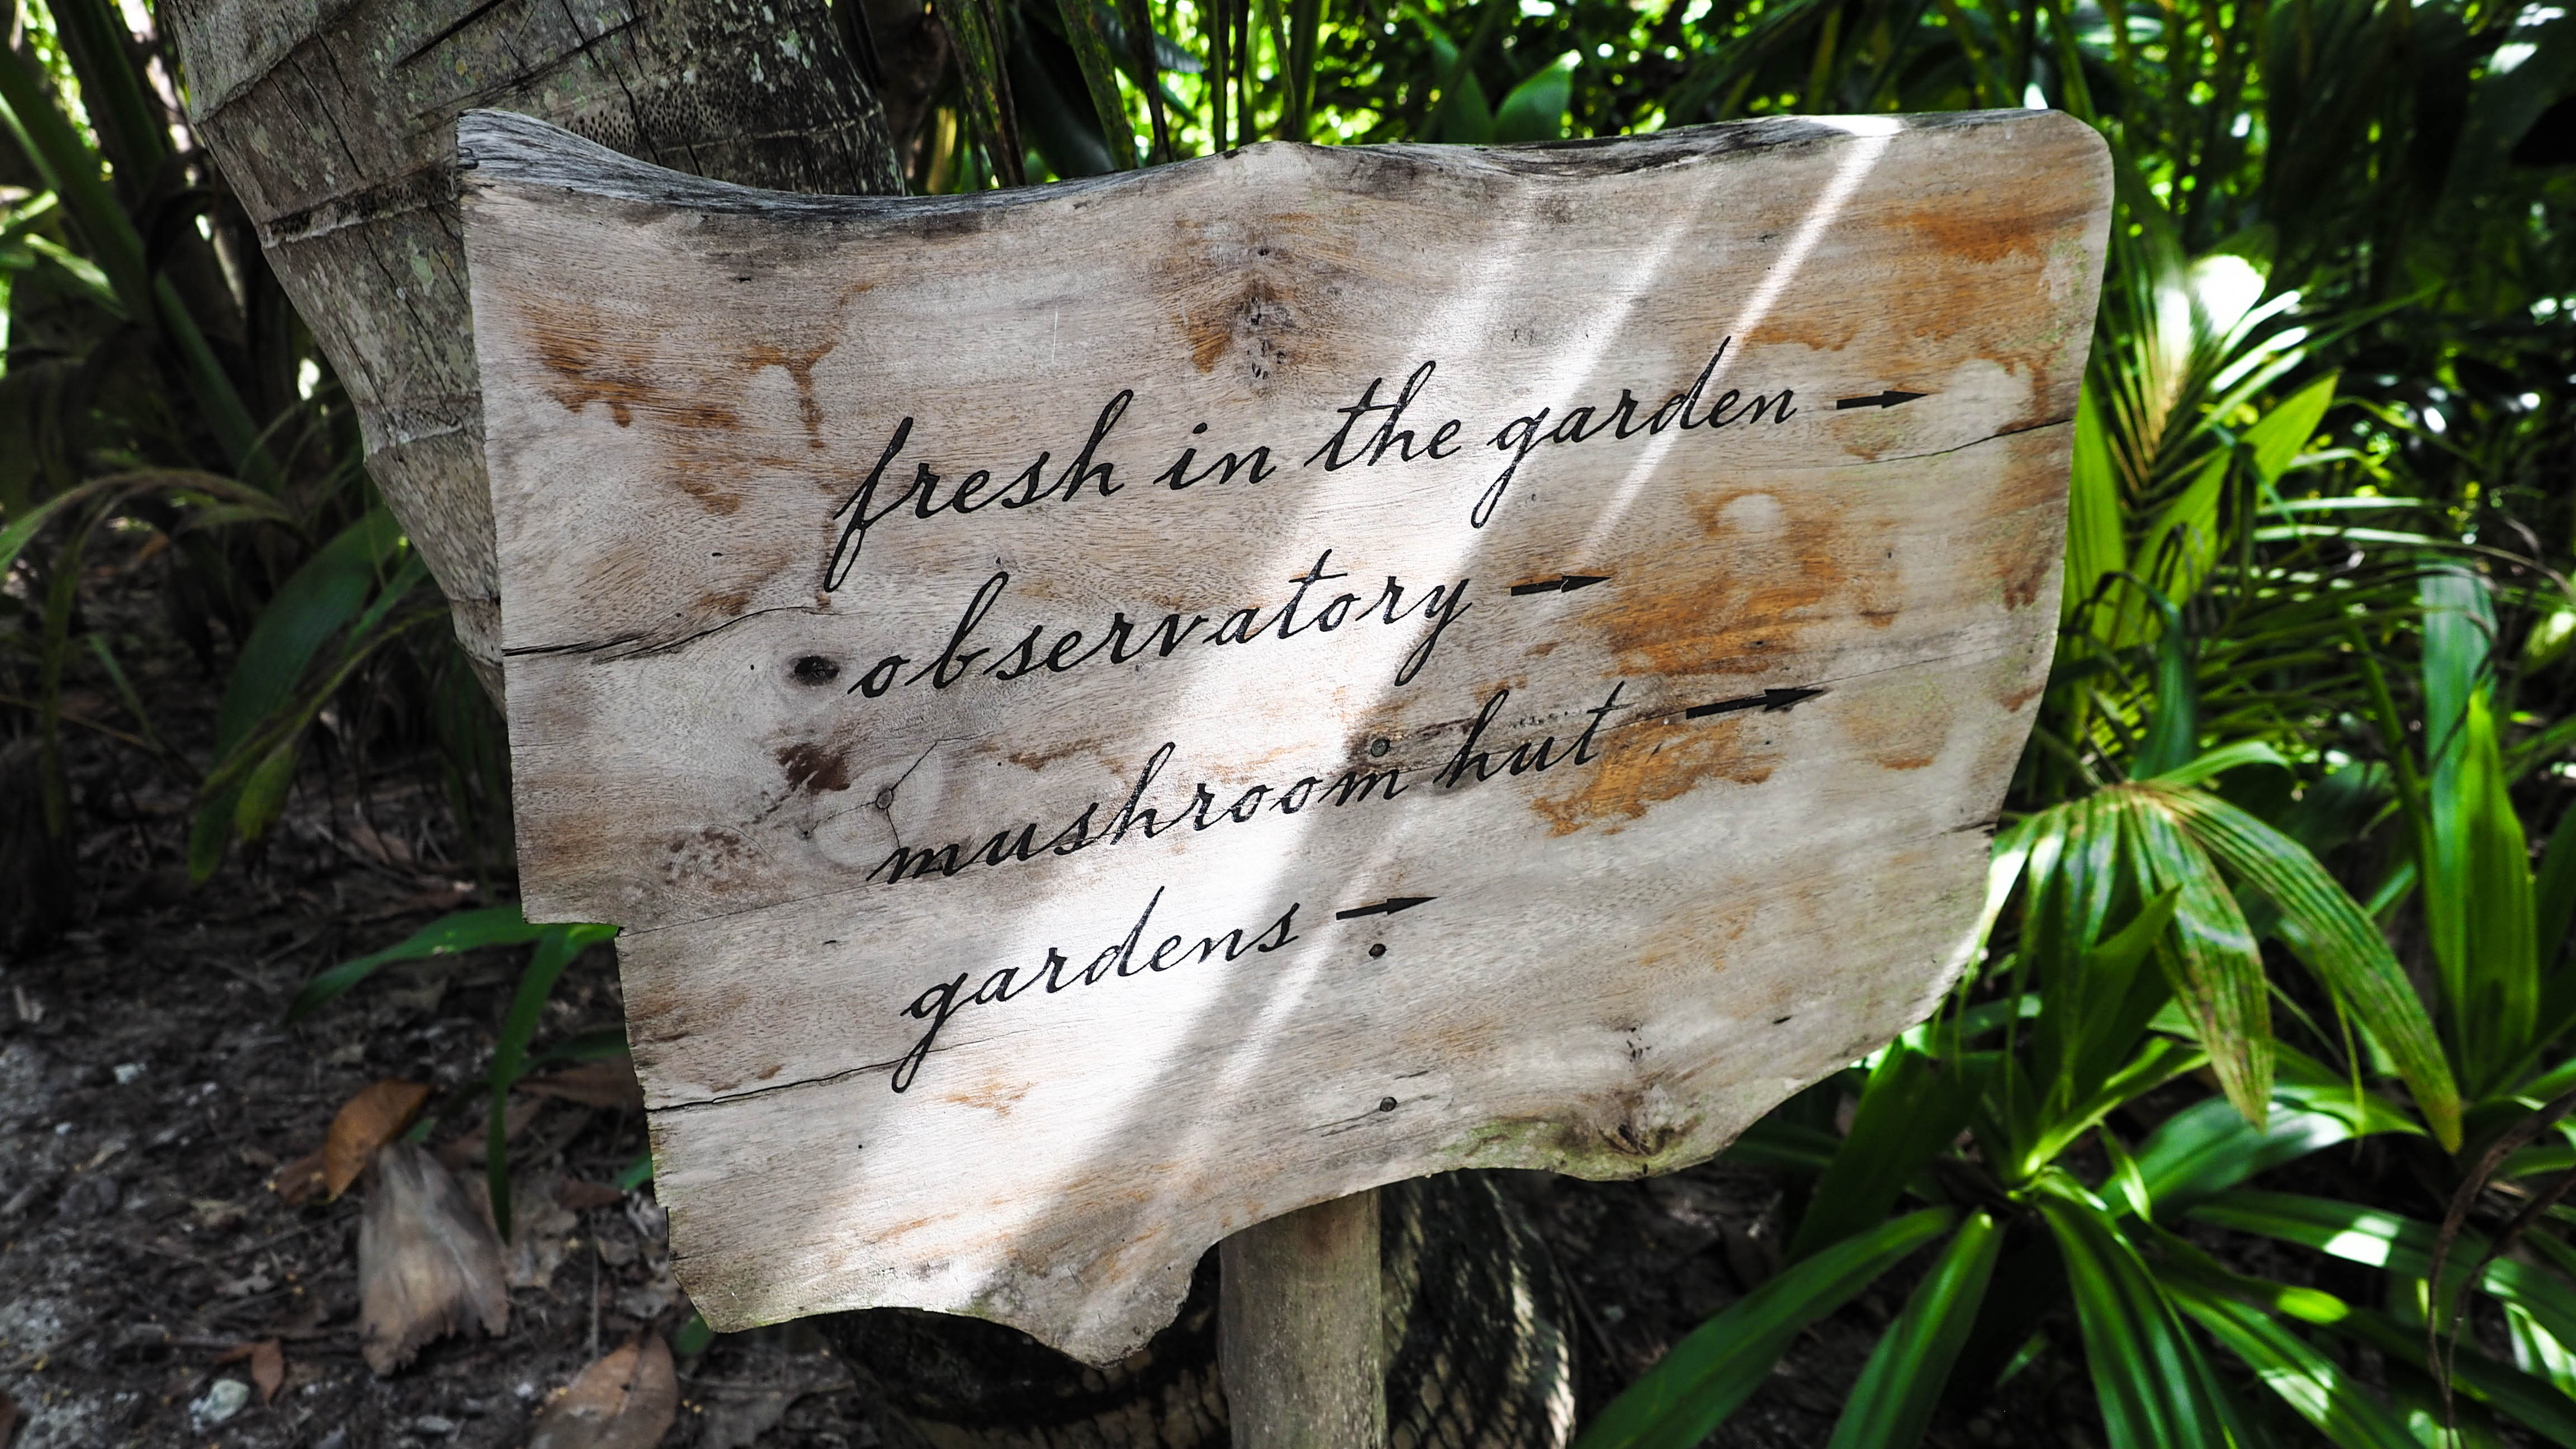 fresh in the garden →
observatory →
mushroom hut →
gardens →